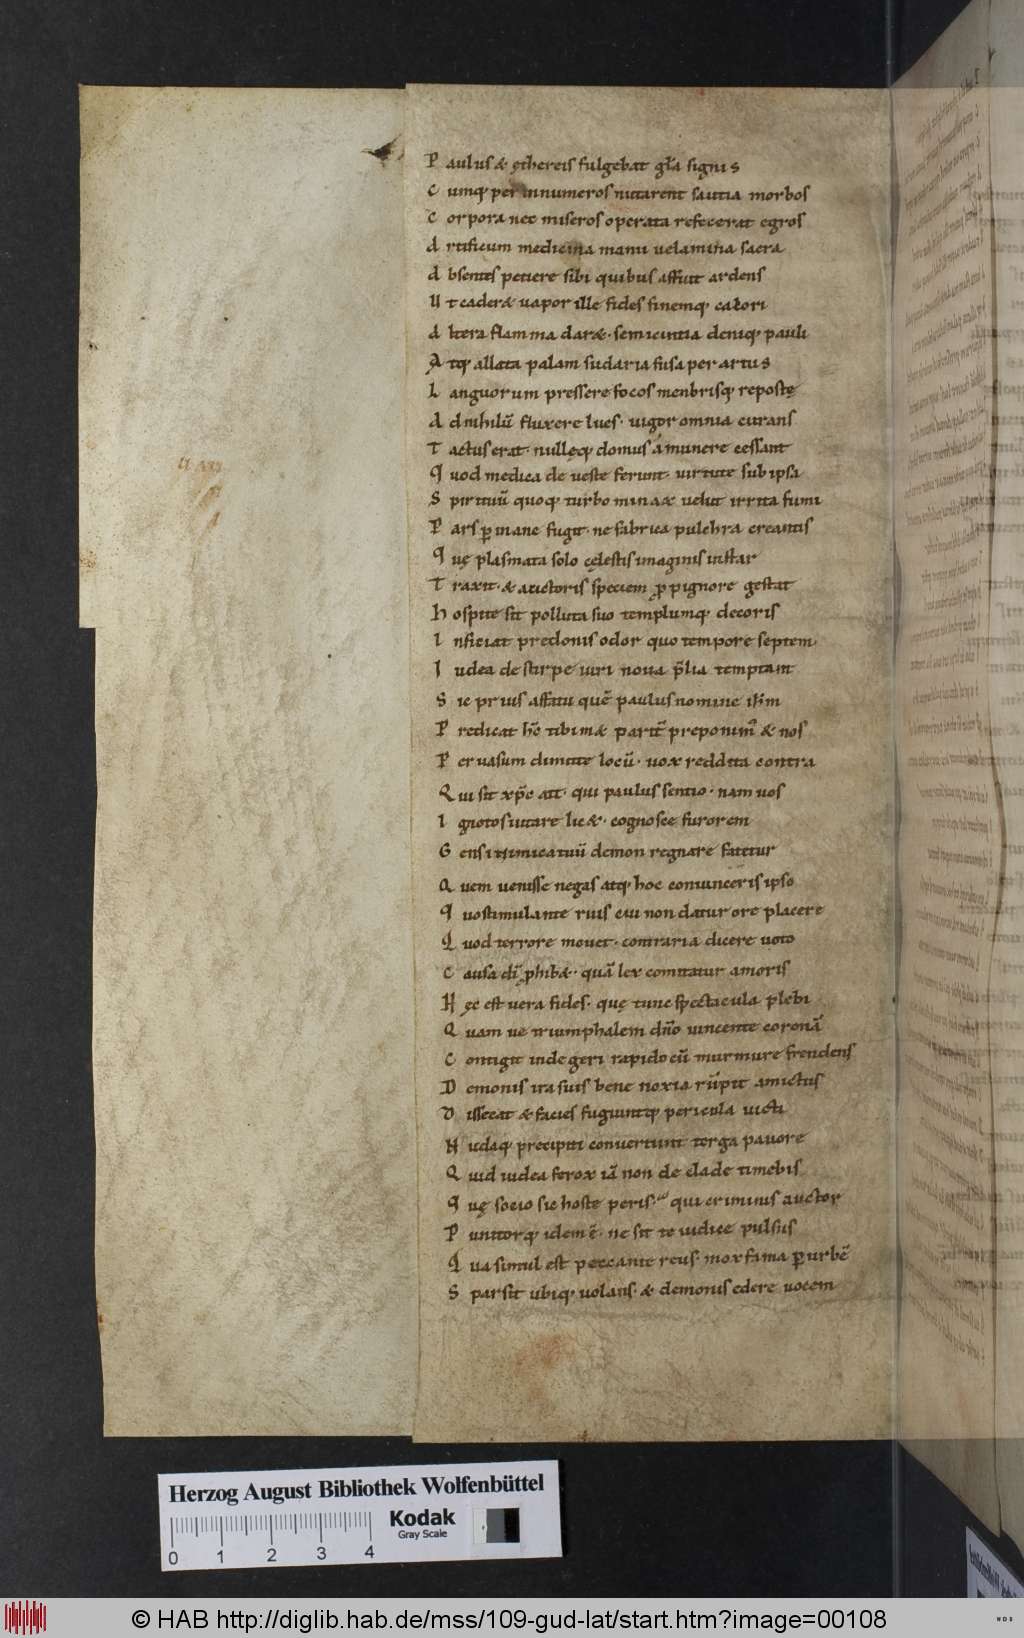 P aulus & ęthereis fulgebat gła signis
C umq; per innumeros nutarent sautia morbos
C orpora nec miseros operata refecerat egros
A rtificum medicina manu uelamina sacra
A bsentes petiere sibi quibus affuit ardens
U t cader& uapor ille fides finemq; calori
A ltera flamma dar&. semicintia deniq; pauli
A tq; allata palam sudaria fusa per artus
L anguorum pressere focos menbrisq; repostę
A d nihilū fluxere lues. uigor omnia curans
T actus erat. nullęq; domus á munere cessant
Q uod medica de ueste ferunt. uirtute sub ipsa
S pirituū quoq; turbo minax uelut irrita fumi
P ars ꝑ inane fugit. ne fabrica pulchra creantis
Q uę plasmata solo cęlestis imaginis instar
T raxit. & auctoris speciem ꝓ pignore gestat
H ospite sit polluta suo templumq; decoris
I nficiat predonis odor quo tempore septem
I udea de stirpe uiri noua p̄lia temptant
S ic prius affatu quē paulus nomine ihm
P redicat hō tibi m& parit̄ preponim᷒ & nos
P eruasum dimitte locū. uox reddita contra
Q ui sit xp̄c ait. qui paulus sentio. nam uos
I gnotos iutare lic&. cognosce furorem
G ens inimica tuū demon regnare fatetur
Q uem uenisse negas atq; hoc conuinceris ipso
Q uo stimulante ruis cui non datur ore placere
Q uod terrore mouet. contraria dicere uoto
C ausa dī ꝓhib&. quā lex comitatur amoris
H ęc est uera fides. quę tunc spectacula plebi
Q uam ue triumphalem dn̄o uincente coronā
C ontigit inde geri rapido cū murmure frendens
D emonis ira suis bene noxia rūpit amictus
D issecat & facies fugiuntq; pericula uicti
N udaq; precipiti conuertunt terga pauore
Q uid iudea ferox iā non de clade timebis
Q uę socio sic hoste peris. qui criminis auctor
P unitorq; idem ē. ne sit te iudice pulsus
Q ua simul est peccante reus. mox fama ꝑ urbē
S parsit ubiq; uolans. & demonis edere uocem
Herzog August Bibliothek Wolfenbüttel
Kodak
Gray Scale
0 1 2 3 4
© HAB http://diglib.hab.de/mss/109-gud-lat/start.htm?image=00108